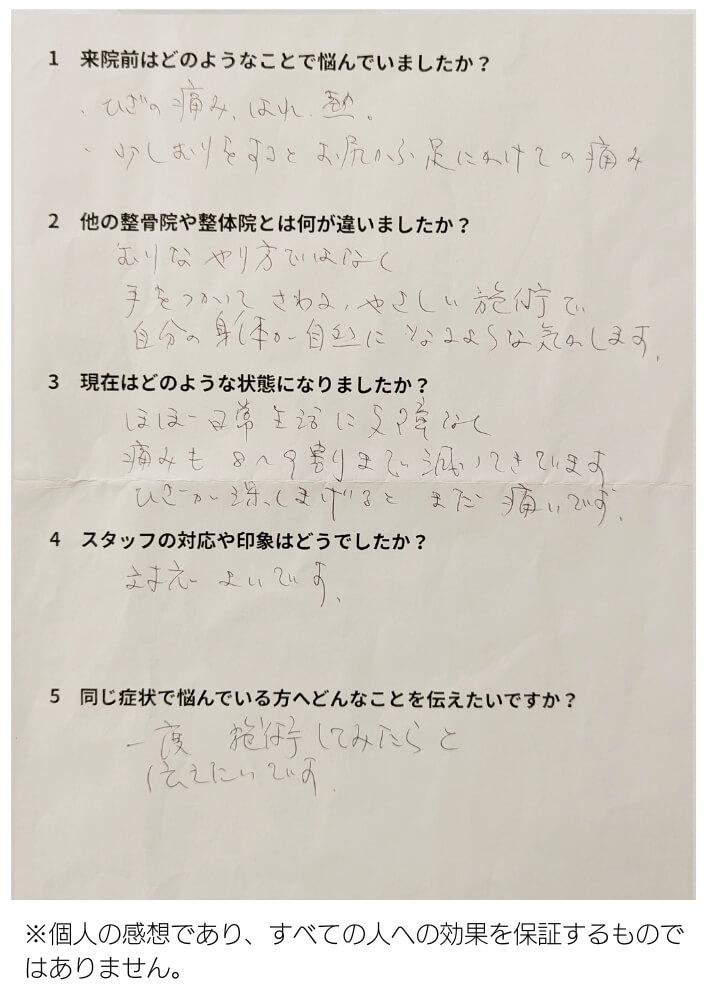 1 来院前はどのようなことで悩んでいましたか？
・ひざの痛み、はれ、熱。
・少しむりをするとお尻から足にかけての痛み
2 他の整骨院や整体院とは何が違いましたか？
むりなやり方ではなく
手をつかいてさわる、やさしい施術で
自分の身体が自然になるような気がします。
3 現在はどのような状態になりましたか？
ほぼ日常生活に支障なく
痛みも8〜9割りまで減ってきています
ひざが深くまげるとまだ痛いです。
4 スタッフの対応や印象はどうでしたか？
対応よいです。
5 同じ症状で悩んでいる方へどんなことを伝えたいですか？
一度 施術してみたらと
伝えたいです。
※個人の感想であり、すべての人への効果を保証するもので
はありません。